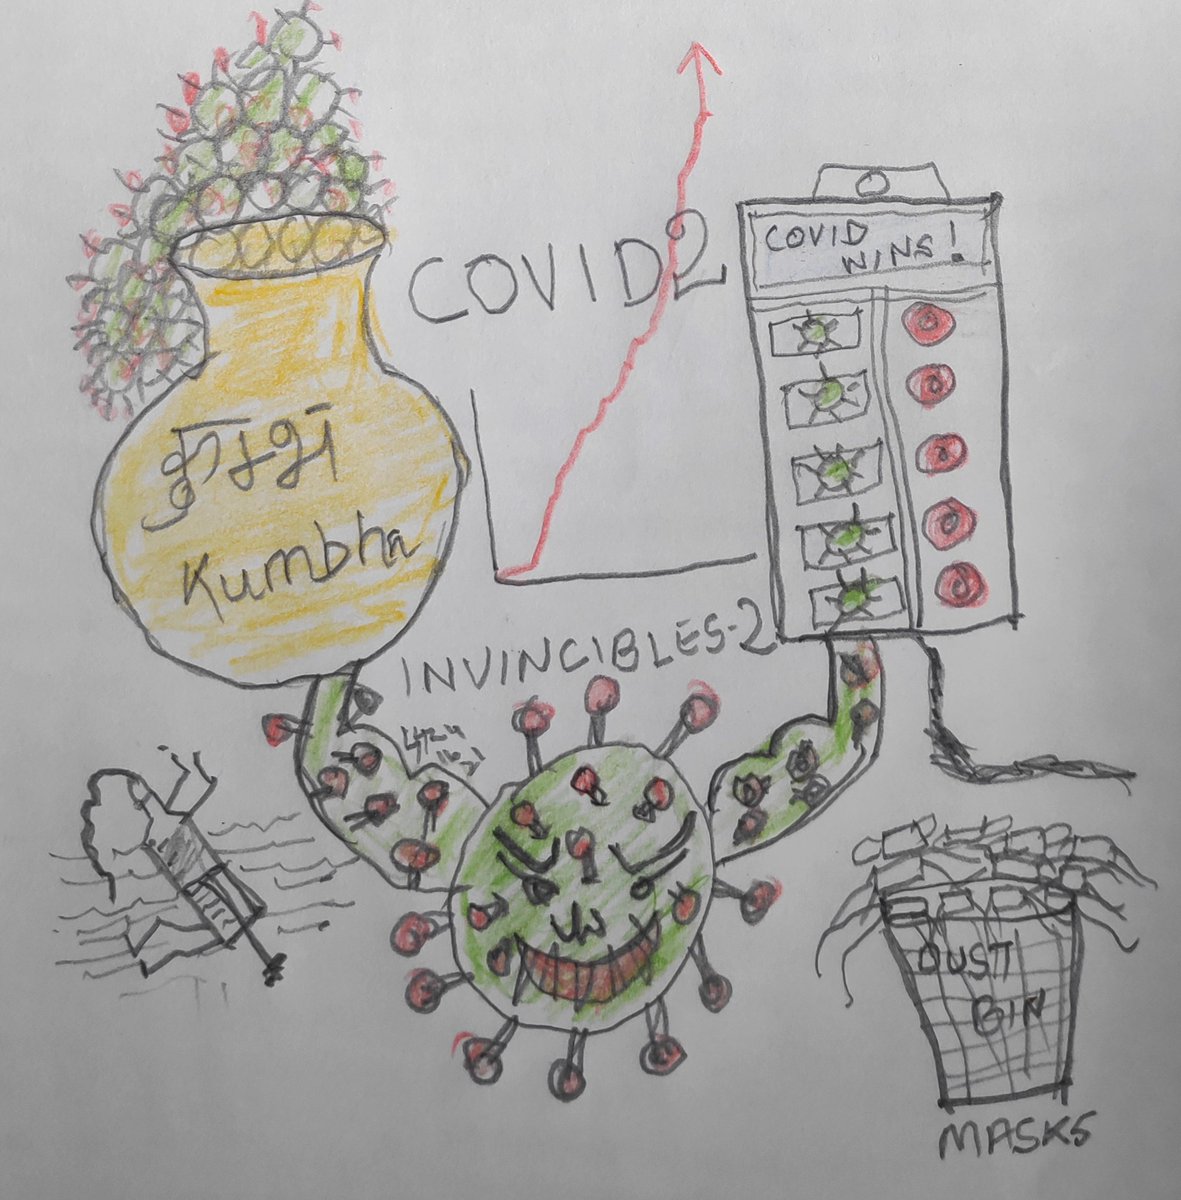 COVID2
COVID
WINS!
कुम्भ
Kumbha
INVINCIBLES-2
DUST
BIN
MASKS